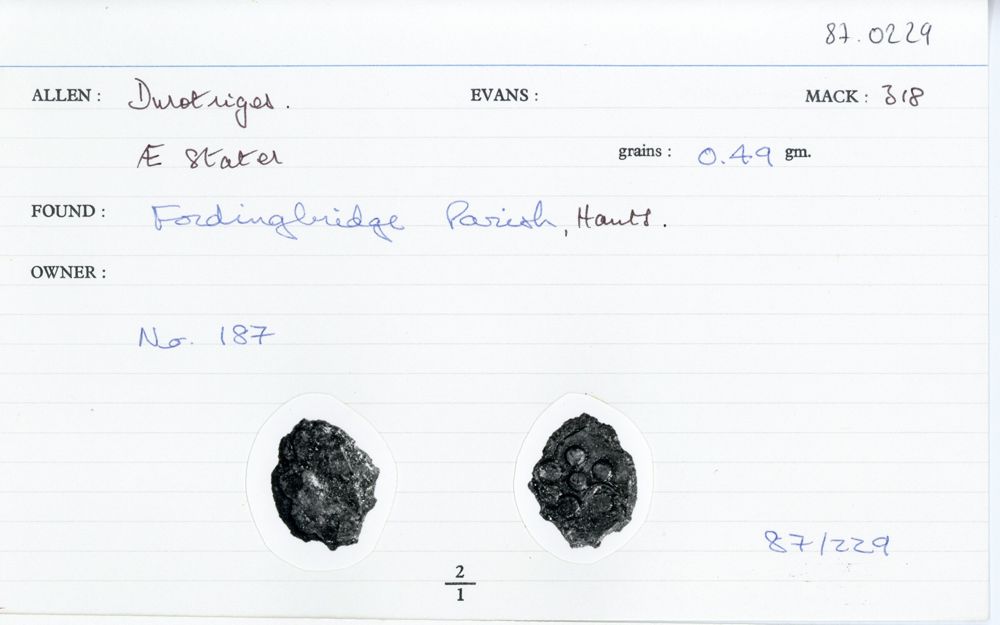 87.0229
ALLEN : Durotriges. EVANS : MACK : 318
Æ Stater grains : 0.49 gm.
FOUND : Fordingbridge Parish, Hants.
OWNER :
No. 187
87/229
2
1